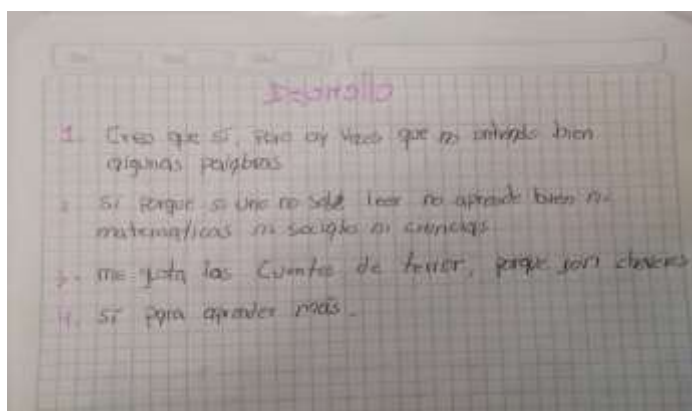 1. Creo que si, pero ay veces que no entiendo bien
algunas palabras
2. Si porque si uno no sabe leer no aprende bien ni
matematicas ni sociales ni ciencias.
3. me gusta las Cuentos de terror, porque son cheveres
4. Si para aprender más.